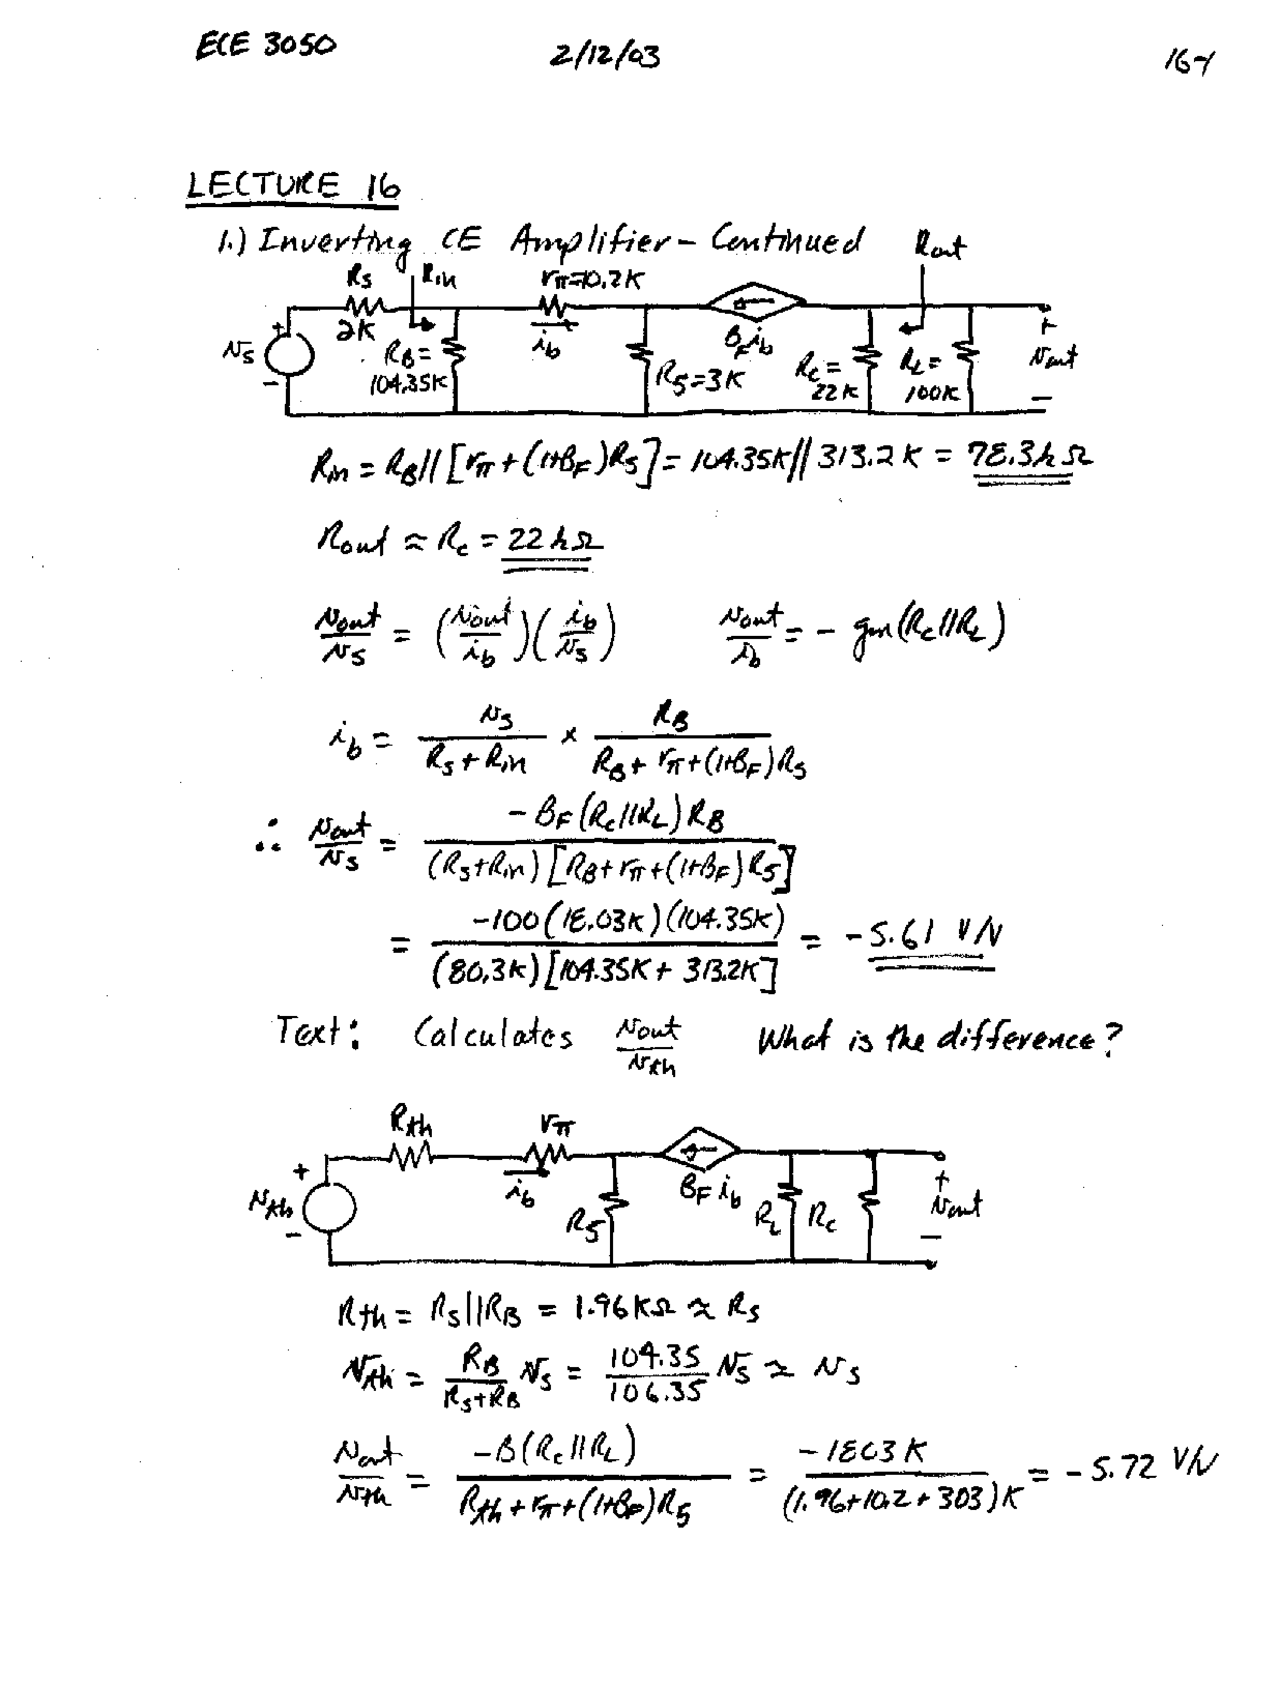 ECE 3050 2/12/03 16-1
LECTURE 16
1.) Inverting CE Amplifier - Continued
Rout
RS Rin rπ=10.2K
+ 2K ib βF ib +
vS RB= 104.35K R5=3K RC= 22K RL= 100K vout
- -
Rin = RB//[rπ+(1+βF)R5] = 104.35K//313.2K = 78.3kΩ
Rout ≈ Rc = 22kΩ
vout/vS = (vout/ib)(ib/vS) vout/ib = - gm(Rc//RL)
ib = vS/(RS+Rin) × RB/(RB+rπ+(1+βF)R5)
∴ vout/vS = -βF(Rc//RL)RB/((RS+Rin)[RB+rπ+(1+βF)R5])
= -100(18.03K)(104.35K)/((80.3K)[104.35K+313.2K]) = -5.61 V/V
Text: Calculates vout/vth What is the difference?
Rth rπ
+ ib βF ib +
vth R5 RL Rc vout
- -
Rth = RS||RB = 1.96KΩ ≈ RS
vth = RB/(RS+RB) vS = 104.35/106.35 vS ≈ vS
vout/vth = -β(Rc||RL)/(Rth+rπ+(1+βF)R5) = -1803K/((1.96+10.2+303)K) = -5.72 V/V